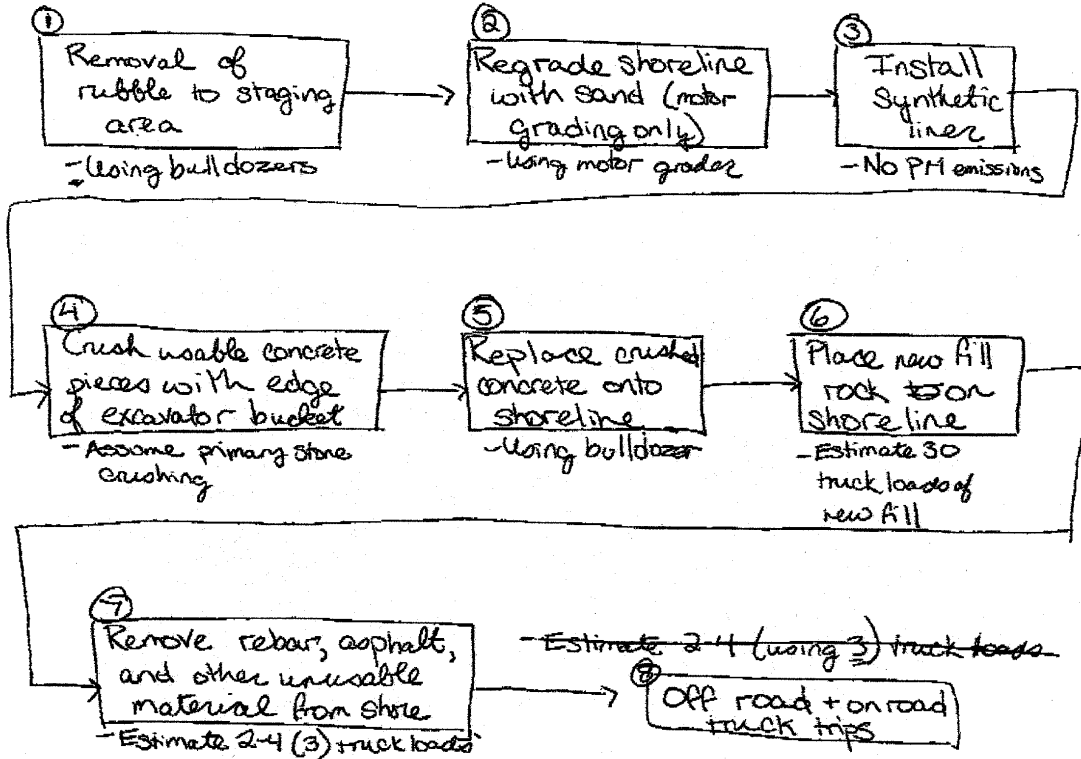 ①
Removal of
rubble to staging
area
- Using bulldozers
②
Regrade shoreline
with sand (motor
grading only)
- Using motor grader
③
Install
synthetic
liner
- No PM emissions
④
Crush usable concrete
pieces with edge
of excavator bucket
- Assume primary stone
crushing
⑤
Replace crushed
concrete onto
shoreline
- Using bulldozer
⑥
Place new fill
rock to on
shoreline
- Estimate 30
truck loads of
new fill
⑦
Remove rebar, asphalt,
and other unusable
material from shore
- Estimate 2-4 (3) truck loads
Estimate 2-4 (using 3) truck loads
⑧
Off road + on road
truck trips